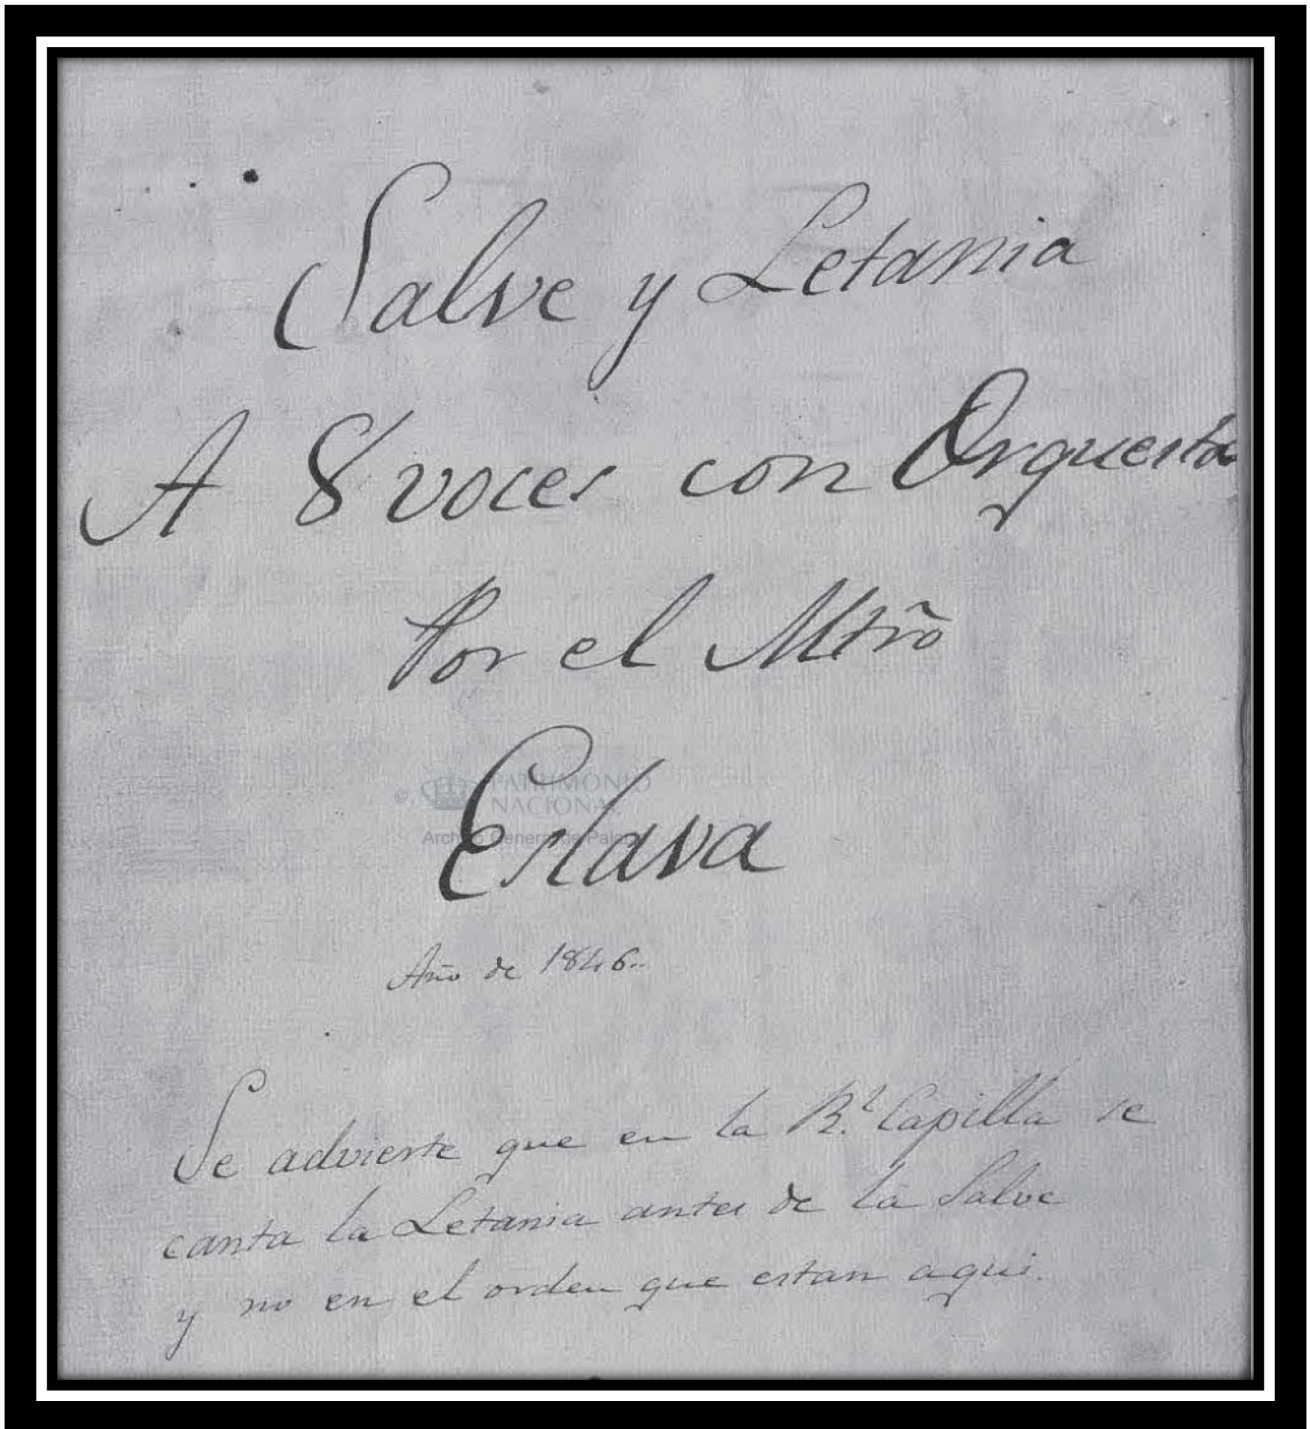 Salve y Letania
A 8 voces con Orquesta
Por el Mtrõ
Eslava
PATRIMONIO
NACIONAL
Archivo General de Palacio
Año de 1846..
Se advierte que en la R.l Capilla se
canta la Letania antes de la Salve
y no en el orden que estan aqui.